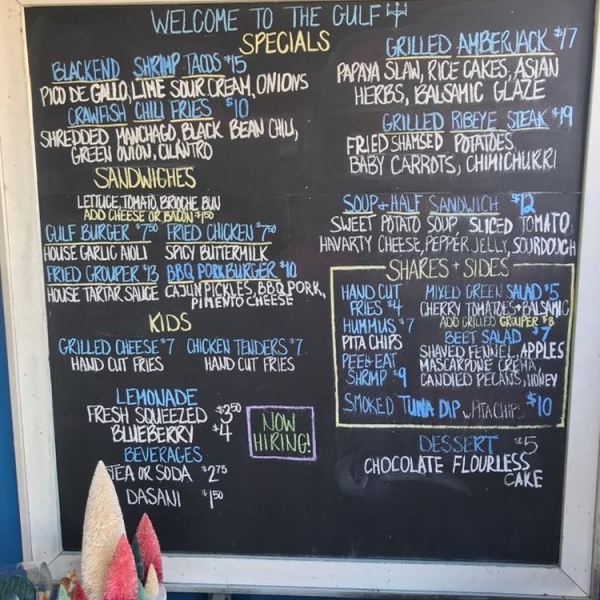 WELCOME TO THE GULF
SPECIALS
BLACKEND SHRIMP TACOS $15
PICO DE GALLO, LIME SOUR CREAM, ONIONS
CRAWFISH CHILI FRIES $10
SHREDDED MANCHAGO, BLACK BEAN CHILI,
GREEN ONION, CILANTRO
GRILLED AMBERJACK $17
PAPAYA SLAW, RICE CAKES, ASIAN
HERBS, BALSAMIC GLAZE
GRILLED RIBEYE STEAK $19
FRIED SHAMSED POTATOES
BABY CARROTS, CHIMICHURRI
SANDWIGHES
LETTUCE, TOMATO, BRIOCHE BUN
ADD CHEESE OR BACON $1.50
GULF BURGER $7.50
HOUSE GARLIC AIOLI
FRIED CHICKEN $7.50
SPICY BUTTERMILK
FRIED GROUPER $13
HOUSE TARTAR SAUCE
BBQ PORK BURGER $10
CAJUN PICKLES, BBQ PORK,
PIMENTO CHEESE
SOUP + HALF SANDWICH $12
SWEET POTATO SOUP, SLICED TOMATO
HAVARTY CHEESE, PEPPER JELLY, SOURDOUGH
KIDS
GRILLED CHEESE $7
HAND CUT FRIES
CHICKEN TENDERS $7
HAND CUT FRIES
SHARES + SIDES
HAND CUT
FRIES $4
HUMMUS $7
PITA CHIPS
PEEL + EAT
SHRIMP $9
MIXED GREEN SALAD $5
CHERRY TOMATOES + BALSAMIC
ADD GRILLED GROUPER $8
BEET SALAD $7
SHAVED FENNEL, APPLES
MASCARPONE CREMA,
CANDIED PECANS, HONEY
SMOKED TUNA DIP, PITA CHIPS $10
LEMONADE
FRESH SQUEEZED $3.50
BLUEBERRY $4
BEVERAGES
TEA OR SODA $2.75
DASANI $1.50
NOW
HIRING!
DESSERT $5
CHOCOLATE FLOURLESS
CAKE